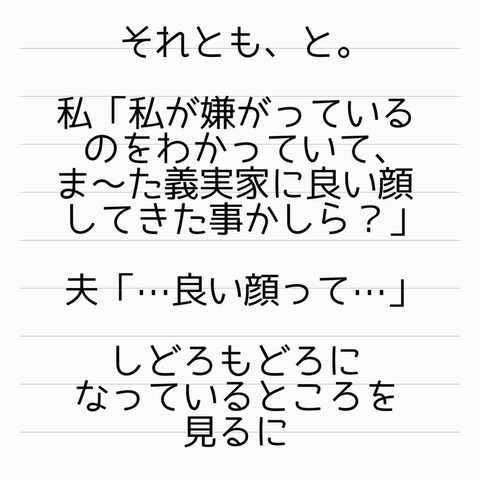 それとも、と。
私「私が嫌がっている
のをわかっていて、
ま〜た義実家に良い顔
してきた事かしら？」
夫「…良い顔って…」
しどろもどろに
なっているところを
見るに